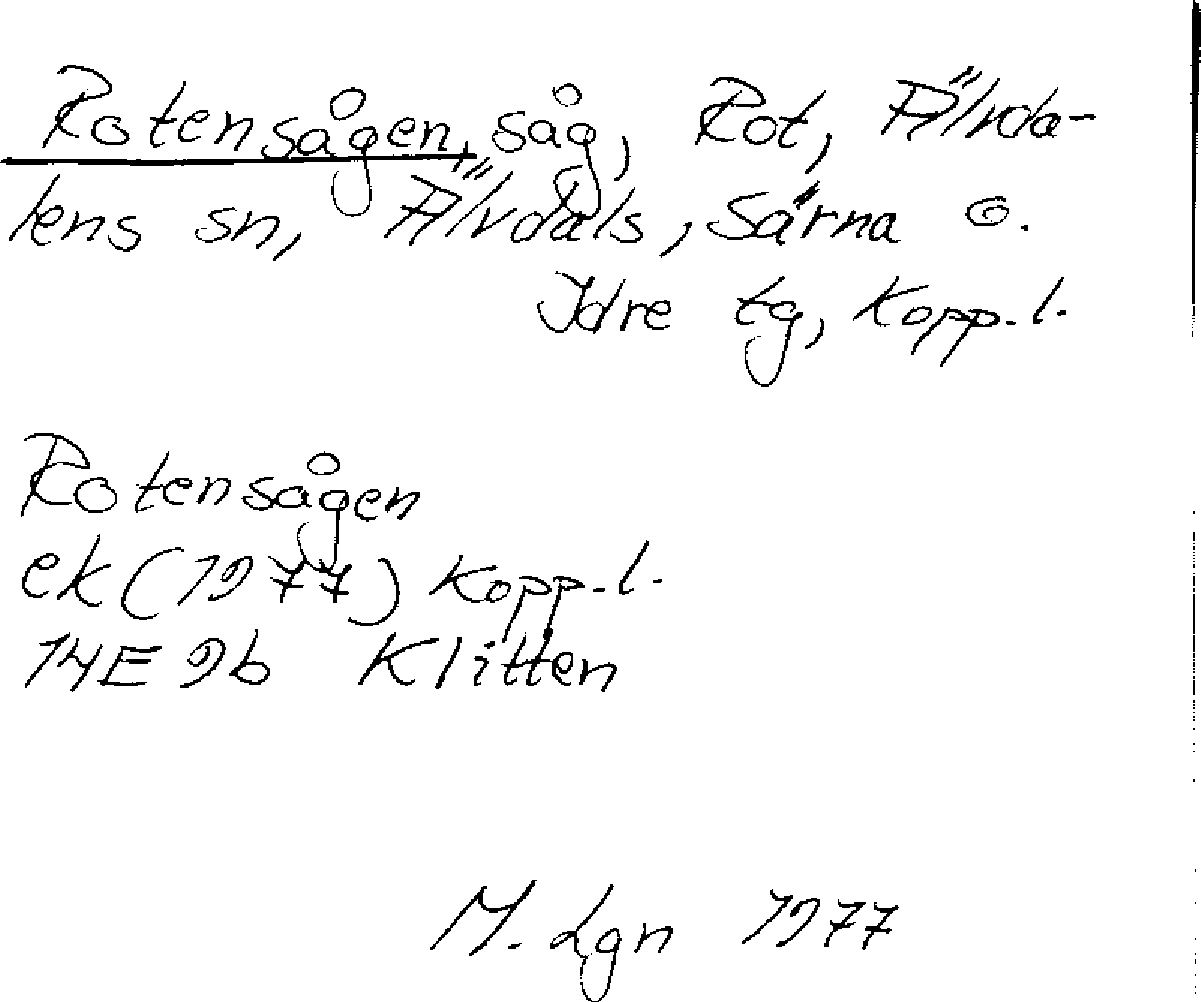 Rotensågen, såg, Rot, Älvda-
lens sn, Älvdals, Särna o.
Idre tg, Kopp.l.
Rotensågen
ek (1977) Kopp.l.
14E 9b Klitten
M. Lgn 1977